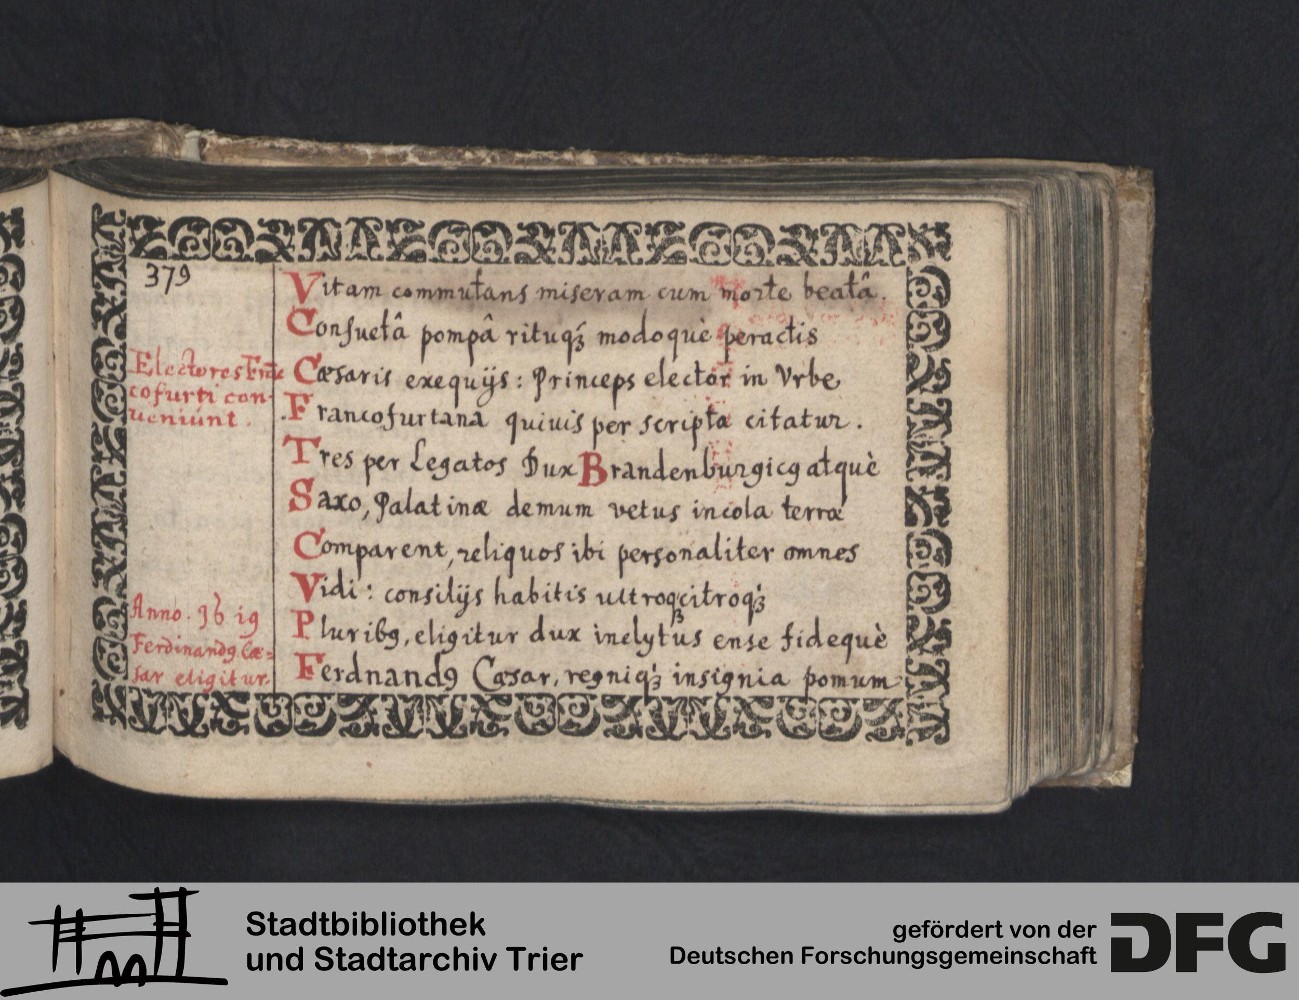 379
Vitam commutans miseram cum morte beatâ.
Consuetâ pompâ rituq́; modoquè peractis
Electores Fran
cofurti con-
ueniunt.
Cæsaris exequijs: Princeps elector in Vrbe
Francofurtana quiuis per scripta citatur.
Tres per Legatos Dux Brandenburgicꝰ atquè
Saxo, Palatinæ demum vetus incola terræ
Comparent, reliquos ibi personaliter omnes
Vidi: consilijs habitis ultroqꝫcitroq́;
Anno. 16 19
Ferdinandꝰ Cæ-
sar eligitur.
Pluribꝰ, eligitur dux inclytus ense fidequè
Ferdnandꝰ Cæsar, regniq́; insignia pomum
Stadtbibliothek
und Stadtarchiv Trier
gefördert von der
Deutschen Forschungsgemeinschaft
DFG